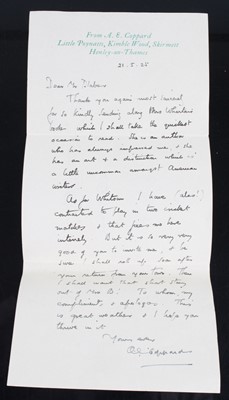 From A. E. Coppard
Little Poynatts, Kimble Wind, Skirmett
Henley-on-Thames
21. 5. 28
Dear Mr
Thank you again most
for so kindly sending along Miss Wharton's
which I shall take the quickest
occasion to read. She is an author
who has always impressed me, & she
has an art & a distinction which is
a little uncommon amongst American
writers.
As for I have (alas!)
contracted to play in two cricket
matches, & that fears me here
But it is very very
good of you to invite me, & be
sure I shall after
your return from your tour. Then
I shall want that short story
out of Mrs B. To whom, my
compliments, & apology. This
is great weather & I hope you
thrive in it
Yours ever
A. E. Coppard